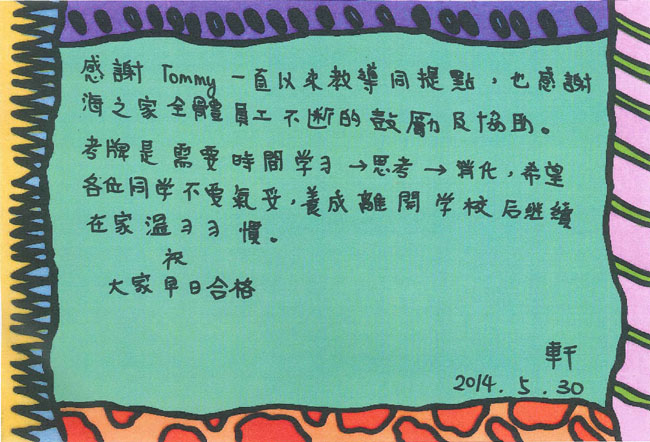 感謝 Tommy 一直以來教導同提點，也感謝
海之家全體員工不断的鼓勵及協助。
考牌是需要時間学习→思考→消化，希望
各位同学不要氣妥，養成離開学校后继续
在家温习习慣。
祝
大家早日合格
軒
2014.5.30